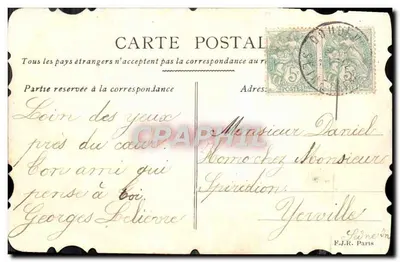 CARTE POSTAL
Tous les pays étrangers n'acceptent pas la correspondance au
Partie réservée à la correspondance
Adres
Loin des yeux
près du cœur
Ton ami qui
pense à toi
Georges Lelievre
Monsieur Daniel
Homo chez Monsieur
Spiridion
Yerville
Seine Inf
F.J.R. Paris
5 5
CPAPHIL